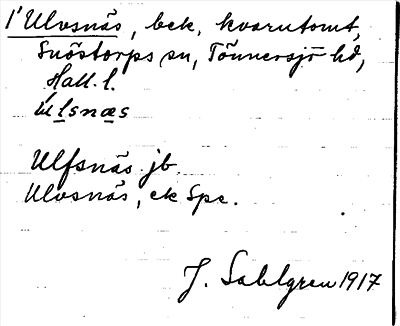 1' Ulvsnäs, bek. kvarntomt,
Snöstorps sn, Tönnersjö hd,
Hall. l.
úlsnæs
Ulfsnäs jb.
Ulvsnäs, ek Spc.
J. Sahlgren 1917